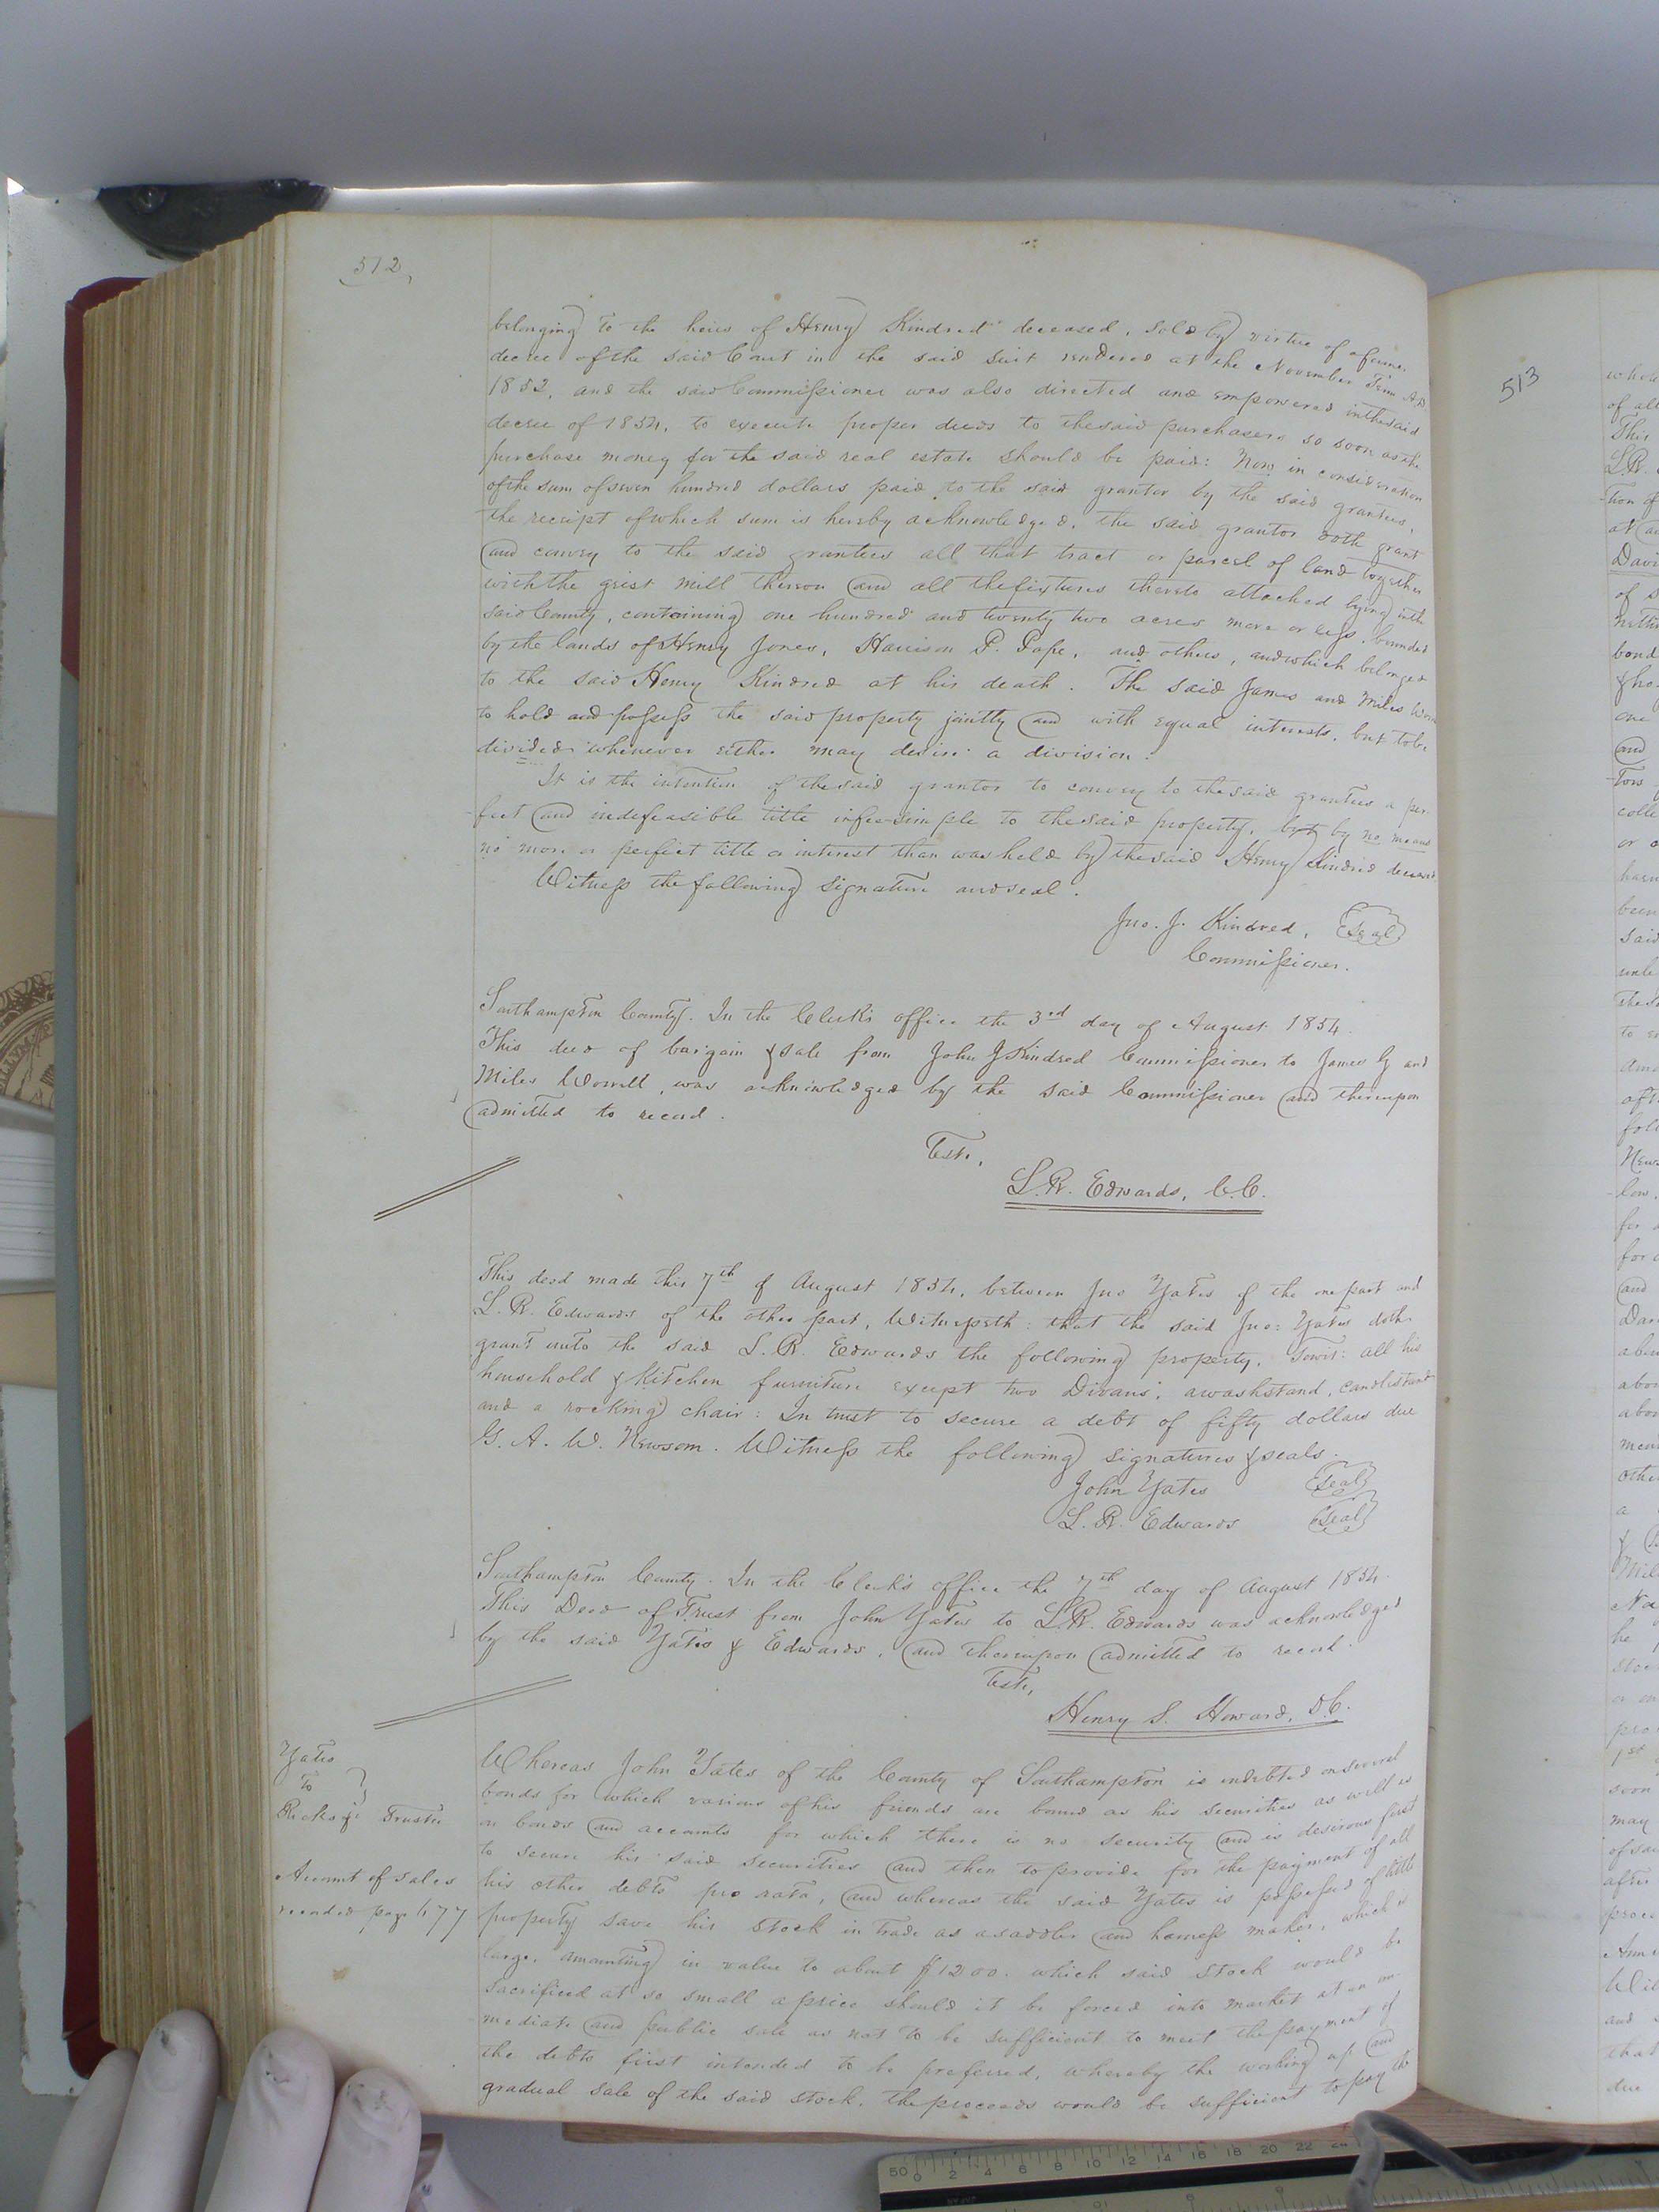 512
belonging to the heirs of Henry Kindred deceased, sold by virtue of a former
decree of the said Court in the said suit rendered at the November Term A.D.
1852, and the said Commissioner was also directed and empowered in the said
decree of 1854, to execute proper deeds to the said purchasers so soon as the
purchase money for the said real estate should be paid: Now in consideration
of the sum of seven hundred dollars paid to the said grantor by the said grantees,
the receipt of which sum is hereby acknowledged, the said grantor doth grant
and convey to the said grantees all that tract or parcel of land together
with the grist mill thereon and all the fixtures thereto attached lying in the
said County, containing one hundred and twenty two acres more or less, bounded
by the lands of Henry Jones, Harrison P. Pope, and others, and which belonged
to the said Henry Kindred at his death. The said James and Miles Worrell
to hold and possess the said property jointly and with equal interests, but to be
divided whenever either may desire a division.
It is the intention of the said grantor to convey to the said grantees a per-
-fect and indefeasible title in fee-simple to the said property, but by no means
no more or perfect title or interest than was held by the said Henry Kindred deceased.
Witness the following signature and seal.
Jno. J. Kindred, Seal
Commissioner.
Southampton County. In the Clerk's office the 3rd day of August 1854.
This deed of bargain & sale from John J Kindred Commissioner to James G and
Miles Worrell, was acknowledged by the said Commissioner and thereupon
admitted to record.
Teste,
L. R. Edwards, C.C.
This deed made this 7th of August 1854, between Jno Yates of the one part and
L. R. Edwards of the other part, Witnesseth: that the said Jno: Yates doth
grant unto the said L. R. Edwards the following property, Towit: all his
household & kitchen furniture except two Divans, a washstand, candlestand
and a rocking chair: In trust to secure a debt of fifty dollars due
G. A. W. Newsom. Witness the following signatures & seals.
John Yates Seal
L. R. Edwards Seal
Southampton County. In the Clerk's office the 7th day of August 1854.
This Deed of Trust from John Yates to L. R. Edwards was acknowledged
by the said Yates & Edwards, and thereupon admitted to record.
Teste,
Henry S. Howard, D.C.
Yates
To
Ricks Trustee
Account of sales
recorded page 677
Whereas John Yates of the County of Southampton is indebted on several
bonds for which various of his friends are bound as his securities as well as
on bonds and accounts for which there is no security and is desirous first
to secure his said securities and then to provide for the payment of all
his other debts pro rata, and whereas the said Yates is possessed of little
property save his stock in trade as a saddler and harness maker, which is
large, amounting in value to about $1200. which said stock would be
sacrificed at so small a price should it be forced into market at an im-
-mediate and public sale as not to be sufficient to meet the payment of
the debts first intended to be preferred, whereby the working up and
gradual sale of the said stock, the proceeds would be sufficient to pay the
513
of all
This
L.R.
-tion of
Davi
of s
bond
one
and
colle
or
been
said
to
and
for
and
a
&
he
1st
soon
may
of sai
after
and
that
due
50 0 2 4 6 8 10 12 14 16 18 20 22